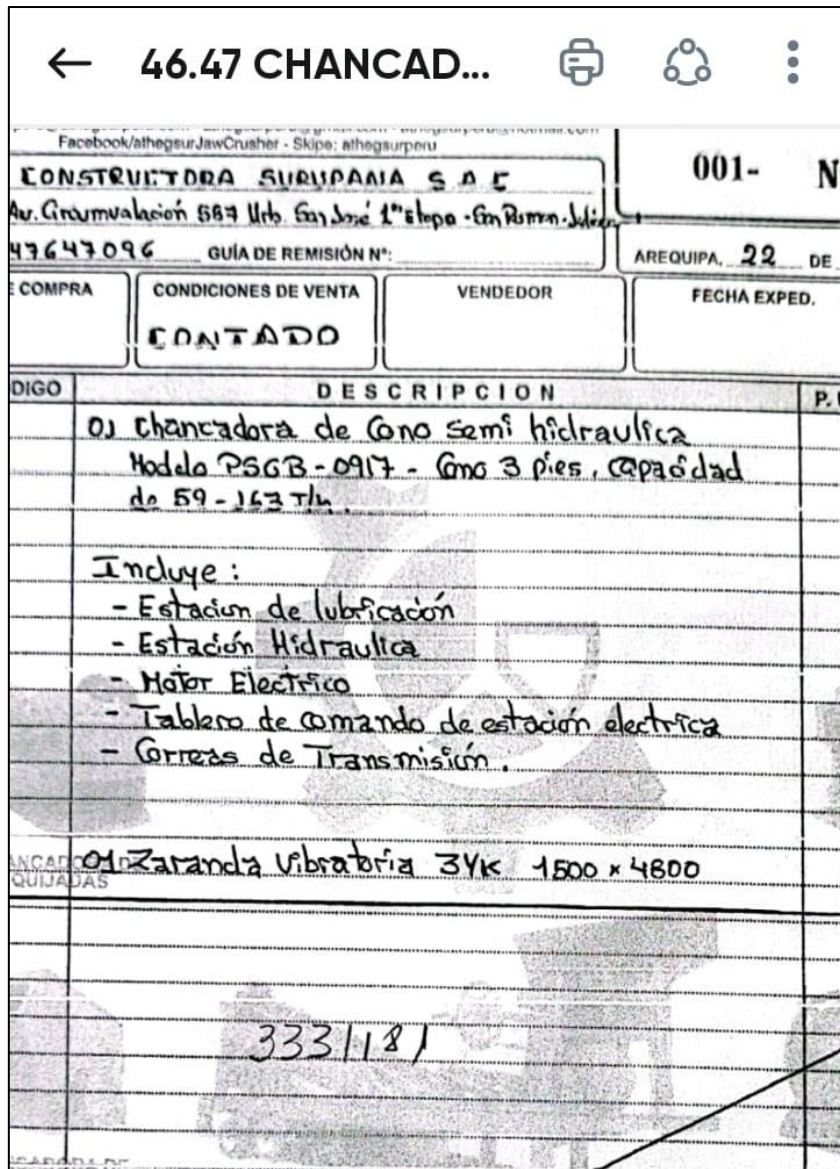 46.47 CHANCAD...
Facebook/athegsurJawCrusher - Skipe: athegsurperu
CONSTRUCTORA SURUPANA S A C
Av. Circunvalación 587 Urb. San José 1ª etapa -
47647096 GUÍA DE REMISIÓN Nº:
001- N
AREQUIPA, 22 DE
COMPRA
CONDICIONES DE VENTA
CONTADO
VENDEDOR
FECHA EXPED.
DIGO DESCRIPCION P.
01 Chancadora de Cono semi hidraulica
Modelo PSGB-0917 - Cono 3 pies, capacidad
de 59-163 T/h.
Incluye:
- Estacion de lubricación
- Estación Hidraulica
- Motor Electrico
- Tablero de comando de estación electrica
- Correas de Transmisión.
01 Zaranda Vibratoria 3YK 1500 x 4800
QUIJADAS